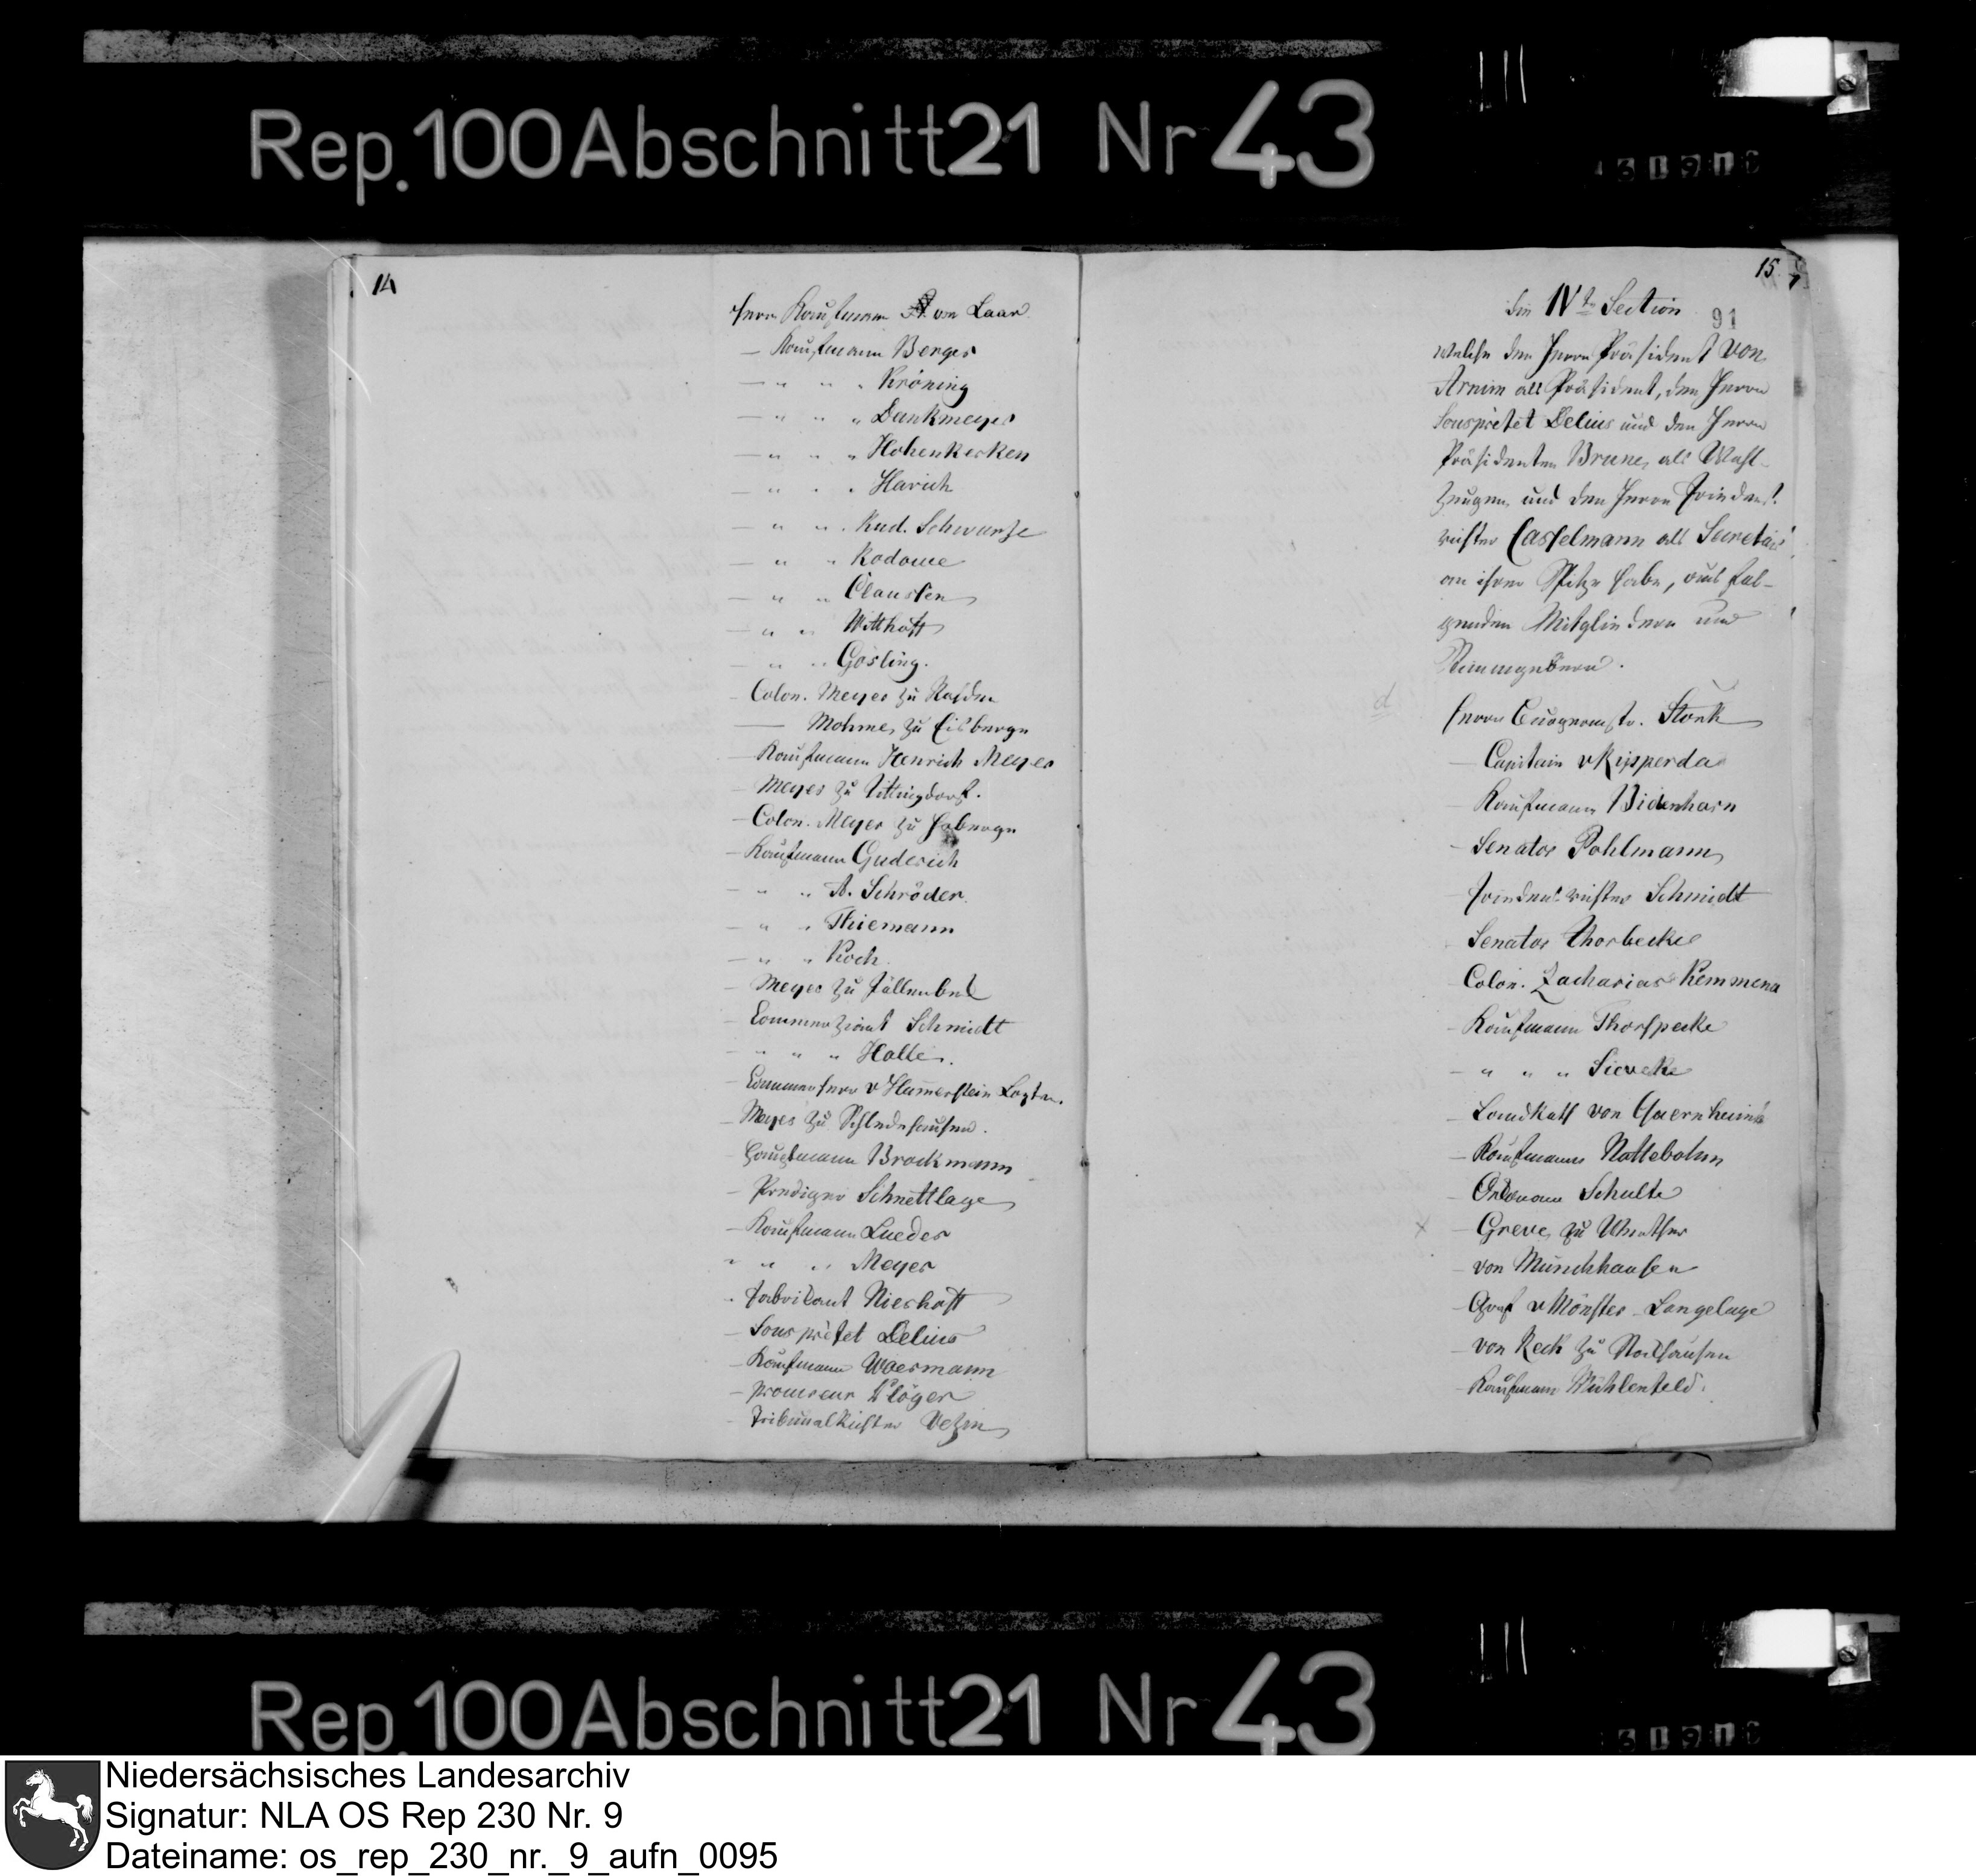 Rep. 100 Abschnitt 21 Nr 43
14
Herrn Kaufmann von Laar
— Kaufmann Berges
— " " " Kröning
— " " " Dankmeyer
— " " " Hohenkerken
— " " " Harich
— " " " Rud. Schwarze
— " " Rodowe
— " " Claussen
— " " Witthoft
— " " Gösling.
Colon. Meyer zu
— Mohme, zu Eisbergen
— Kaufmann Henrich Meyer
— Meyer zu
— Colon. Meyer zu
— Kaufmann Guderich
— " " A. Schröder
— " " Thiemann
— " " Koch
— Meyer zu
— Commerzienr Schmidt
— " " " Holte.
— Cammerherr v Hamerstein Loxten.
— Meyer zu Schledehausen.
Hauptmann Brockmann
— Prediger Schnettlage
— Kaufmann Lueder
" " " Meyer
Fabrikant Nierhoft
— Sousprèfet Delius
— Kaufmann Waermann
— procureur Klöger
Tribunal Richter Vezin
15
91
die IVte Section
welche den Herrn Präsident von
Arnim als Präsident, den Herrn
Sousprèfet Delius und den Herrn
Präsidenten Brune, als Wahl-
zeugen, und den Herrn Friedens-
richter Casselmann als Secretair
an ihrer Spitze habe, aus fol-
genden Mitgliedern und
Stimmgebern.
Herrn Stork
— Capitain v Ripperda
— Kaufmann Bidenharn
— Senator Pohlmann
— Friedensrichter Schmidt
Senator Thorbecke
Colon. Zacharias Kemmena
— Kaufmann Thorspecke
— " " " Sieveke
— Land Rath von Quernheim
— Kaufmann Nottebohm
— Schulte
— Greve, zu
— von Münchhausen
— Graf v Mönster Langelage
— von Reck zu Stockhausen
— Kaufmann Mühlenfeld.
Rep. 100 Abschnitt 21 Nr 43
Niedersächsisches Landesarchiv
Signatur: NLA OS Rep 230 Nr. 9
Dateiname: os_rep_230_nr._9_aufn_0095